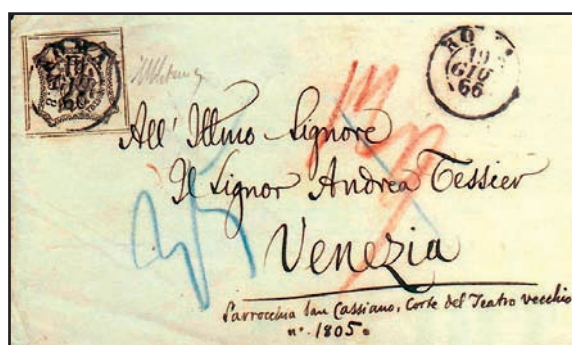 RO
19
GIU
66
All' Illmo Signore
Il Signor Andrea Tessier
Venezia
Parrocchia San Cassiano, Corte del Teatro vecchio
nº. 1805.